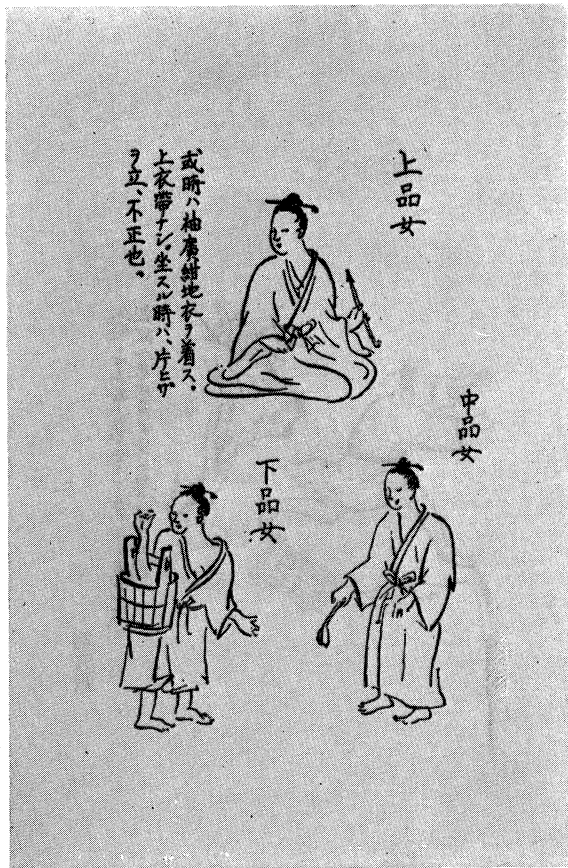 上品女
或時ハ袖廣紺地衣ヲ着ス。
上衣帯ナシ。坐スル時ハ、片ヒザ
ヲ立、不正也。
中品女
下品女